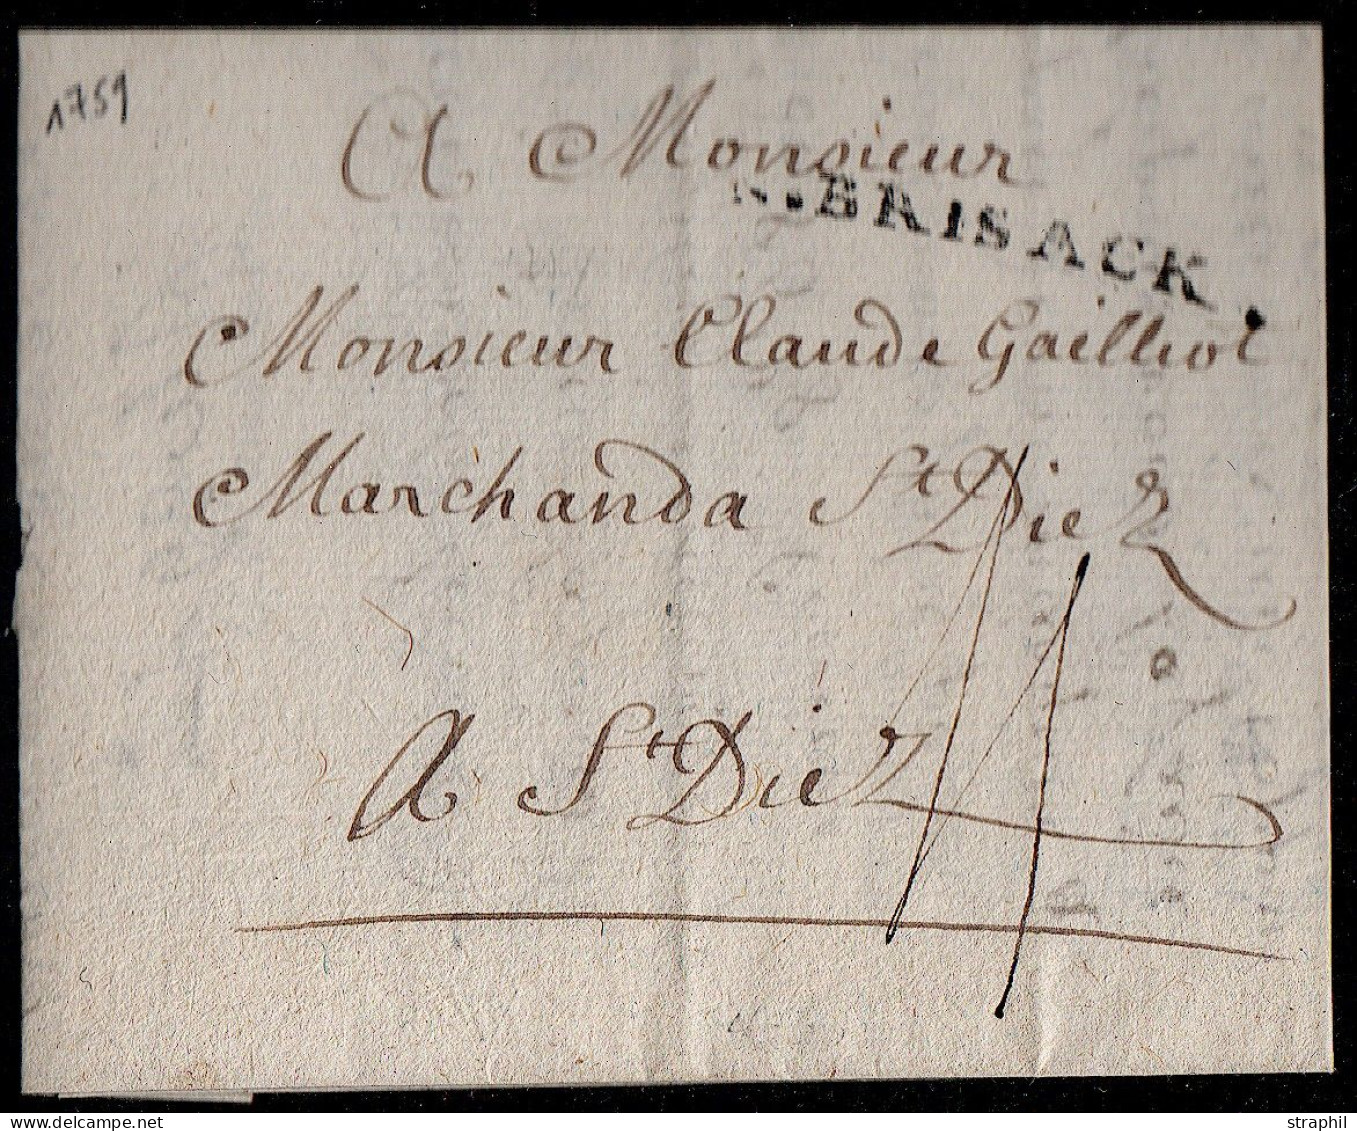 1759
A Monsieur
N.BRISACK.
Monsieur Claude Gailliot
Marchand a St Diez
A St Diez
straphil